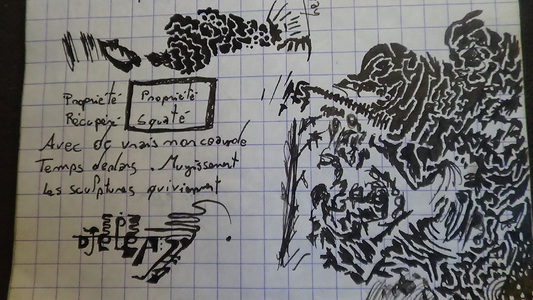 Propriété Propriété
Récupéré Squaté
Avec de vrais morceau de
Temps dedans. Mugissement
les sculptures qui viennent